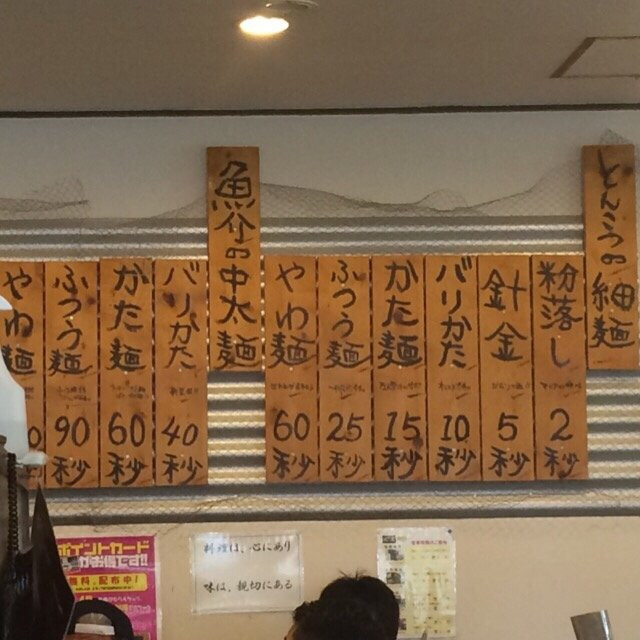 とんこつの細麺
粉落し
2
秒
針金
5
秒
バリかた
10
秒
かた麺
15
秒
ふつう麺
25
秒
やわ麺
60
秒
魚介の中太麺
バリかた
40
秒
かた麺
60
秒
ふつう麺
90
秒
やわ麺
ポイントカード
がお得です!!
無料、配布中!
料理は、心にあり
味は、親切にある